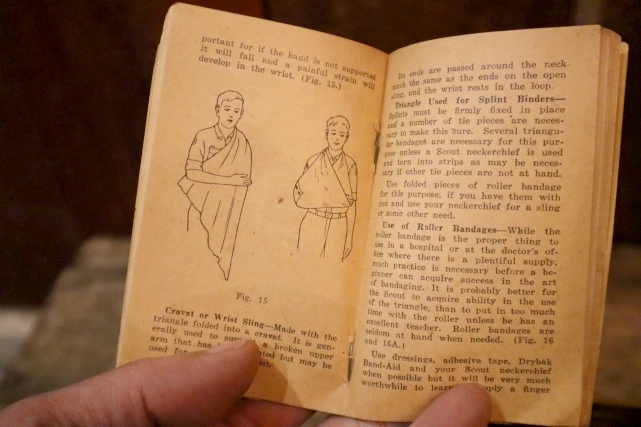 portant for if the hand is not supported
it will fall and a painful strain will
develop in the wrist. (Fig. 15.)
Fig. 15
Cravat or Wrist Sling—Made with the
triangle folded into a cravat. It is gen-
erally used to a broken upper
arm that has but may be
used for
Its ends are passed around the neck
much the same as the ends on the open
sling, and the wrist rests in the loop.
Triangle Used for Splint Binders—
Splints must be firmly fixed in place
and a number of tie pieces are neces-
sary to make this sure. Several triangu-
lar bandages are necessary for this pur-
pose unless a Scout neckerchief is used
and torn into strips as may be neces-
sary if other tie pieces are not at hand.
Use folded pieces of roller bandage
for this purpose, if you have them with
you and use your neckerchief for a sling
or some other need.
Use of Roller Bandages—While the
roller bandage is the proper thing to
use in a hospital or at the doctor's of-
fice where there is a plentiful supply,
much practice is necessary before a be-
ginner can acquire success in the art
of bandaging. It is probably better for
the Scout to acquire ability in the use
of the triangle, than to put in too much
time with the roller unless he has an
excellent teacher. Roller bandages are
seldom at hand when needed. (Fig. 16
and 16A.)
Use dressings, adhesive tape, Drybak
Band-Aid and your Scout neckerchief
when possible but it will be very much
worthwhile to a finger